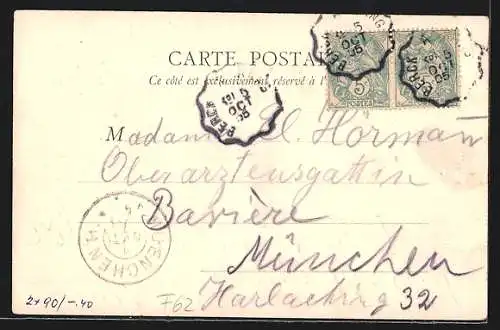 CARTE POSTALE
Ce côté est exclusivement réservé à l'
BERCK
5
OCT
05
BERCK
5
OCT
05
BERCK
5
OCT
05
5
POSTES
Madame El. Hormann
Oberarztensgattin
Bavière
München
Harlaching 32
MÜNCHEN
2x90/-.40
F62